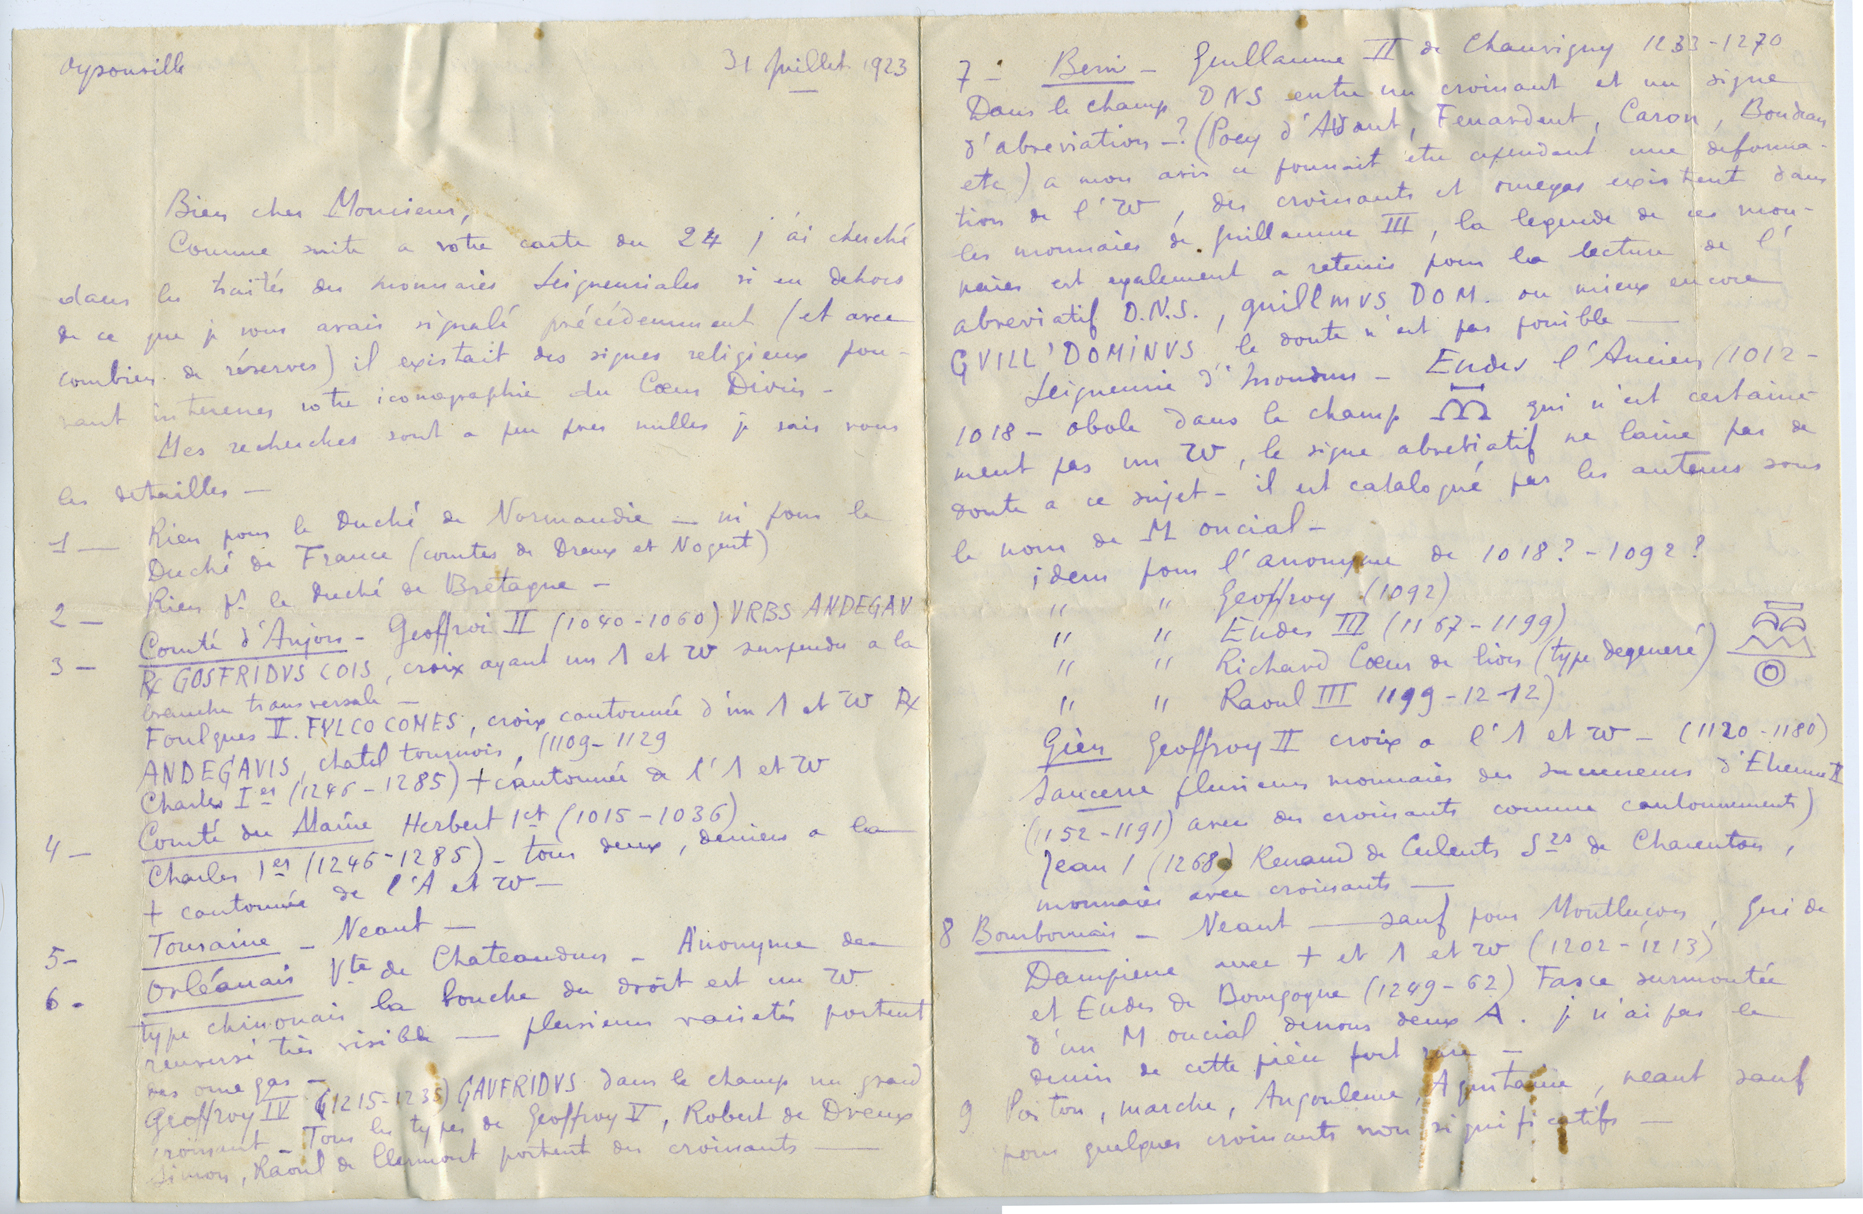 Oysonville 31 Juillet 1923
Bien cher Monsieur,
Comme suite a votre carte du 24 j'ai cherché
dans les traités des monnaies Seigneuriales si en dehors
de ce que je vous avais signalé précédemment (et avec
combien de réserves) il existait des signes religieux pou-
vant interesser votre iconographie du Cœur Divin -
Mes recherches sont a peu pres nulles je vais vous
les detailler -
1 — Rien pour le Duché de Normandie — ni pour le
Duché de France (comtes de Dreux et Nogent)
2 — Rien pr le Duché de Bretagne -
3 — Comté d'Anjou - Geoffroi II (1040-1060) VRBS ANDEGAV
R/ GOSFRIDVS COIS, croix ayant un A et W suspendu a la
branche transversale -
Foulques V. FVLCO COMES, croix cantonnée d'un A et W R/
ANDEGAVIS, chatel tournois, (1109-1129
Charles Ier (1246-1285) + cantonnée de l'A et W
4 — Comté du Maine Herbert 1er (1015-1036)
Charles 1er (1246-1285) - tous deux, deniers a la
+ cantonnée de l'A et W —
5 - Touraine - Neant -
6 - Orléanais Vte de Chateaudun - Anonyme de
type chinonais la bouche du droit est un W
renversé très visible — plusieurs varietés portent
des omegas -
Geoffroy IV (1215-1235) GAVFRIDVS dans le champ un grand
croissant - Tous les types de Geoffroy V, Robert de Dreux
Simon, Raoul de Clermont portent des croissants —
7 - Berri - Guillaume II de Chauvigny 1233-1270
Dans le champ DNS entre un croissant et un signe
d'abreviation -? (Poey d'Avant, Feuardent, Caron, Boudeau
etc) a mon avis ce pourrait etre cependant une deforma-
tion de l'W, des croissants et omegas existent dans
les monnaies de Guillaume III, la legende de ces mon-
naies est egalement a retenir pour la lecture de l'
abreviatif D.N.S., GuillmVS DOM. ou mieux encore
GVILL' DOMINVS le doute n'est pas possible —
Seigneurie d'Issoudun - Eudes l'Ancien (1012-
1018 - obole dans le champ M qui n'est certaine-
ment pas un W, le signe abreviatif ne laisse pas de
doute a ce sujet - il est catalogué par les auteurs sous
le nom de M oncial -
idem pour l'anonyme de 1018? - 1092?
" " Geoffroy (1092)
" " Eudes III (1167-1199)
" " Richard Cœur de lion (type degeneré)
" " Raoul III 1199-12-12)
Gien Geoffroy II croix a l'A et W - (1120-1180)
Sancerre plusieurs monnaies des successeurs d'Etienne II
(1152-1191) avec des croissants comme cantonnements)
Jean I (1268) Renaud de Culents Srs de Charenton,
monnaies avec croissants —
8 Bourbonnais - Neant — sauf pour Montluçon, Gui de
Dampierre avec + et A et W (1202-1213)
et Eudes de Bourgogne (1249-62) Fasce surmontée
d'un M oncial dessous deux A. je n'ai pas le
dessin de cette pièce fort rare -
9 Poitou, marche, Angouleme, Aquitaine, neant sauf
pour quelques croissants non significatifs —